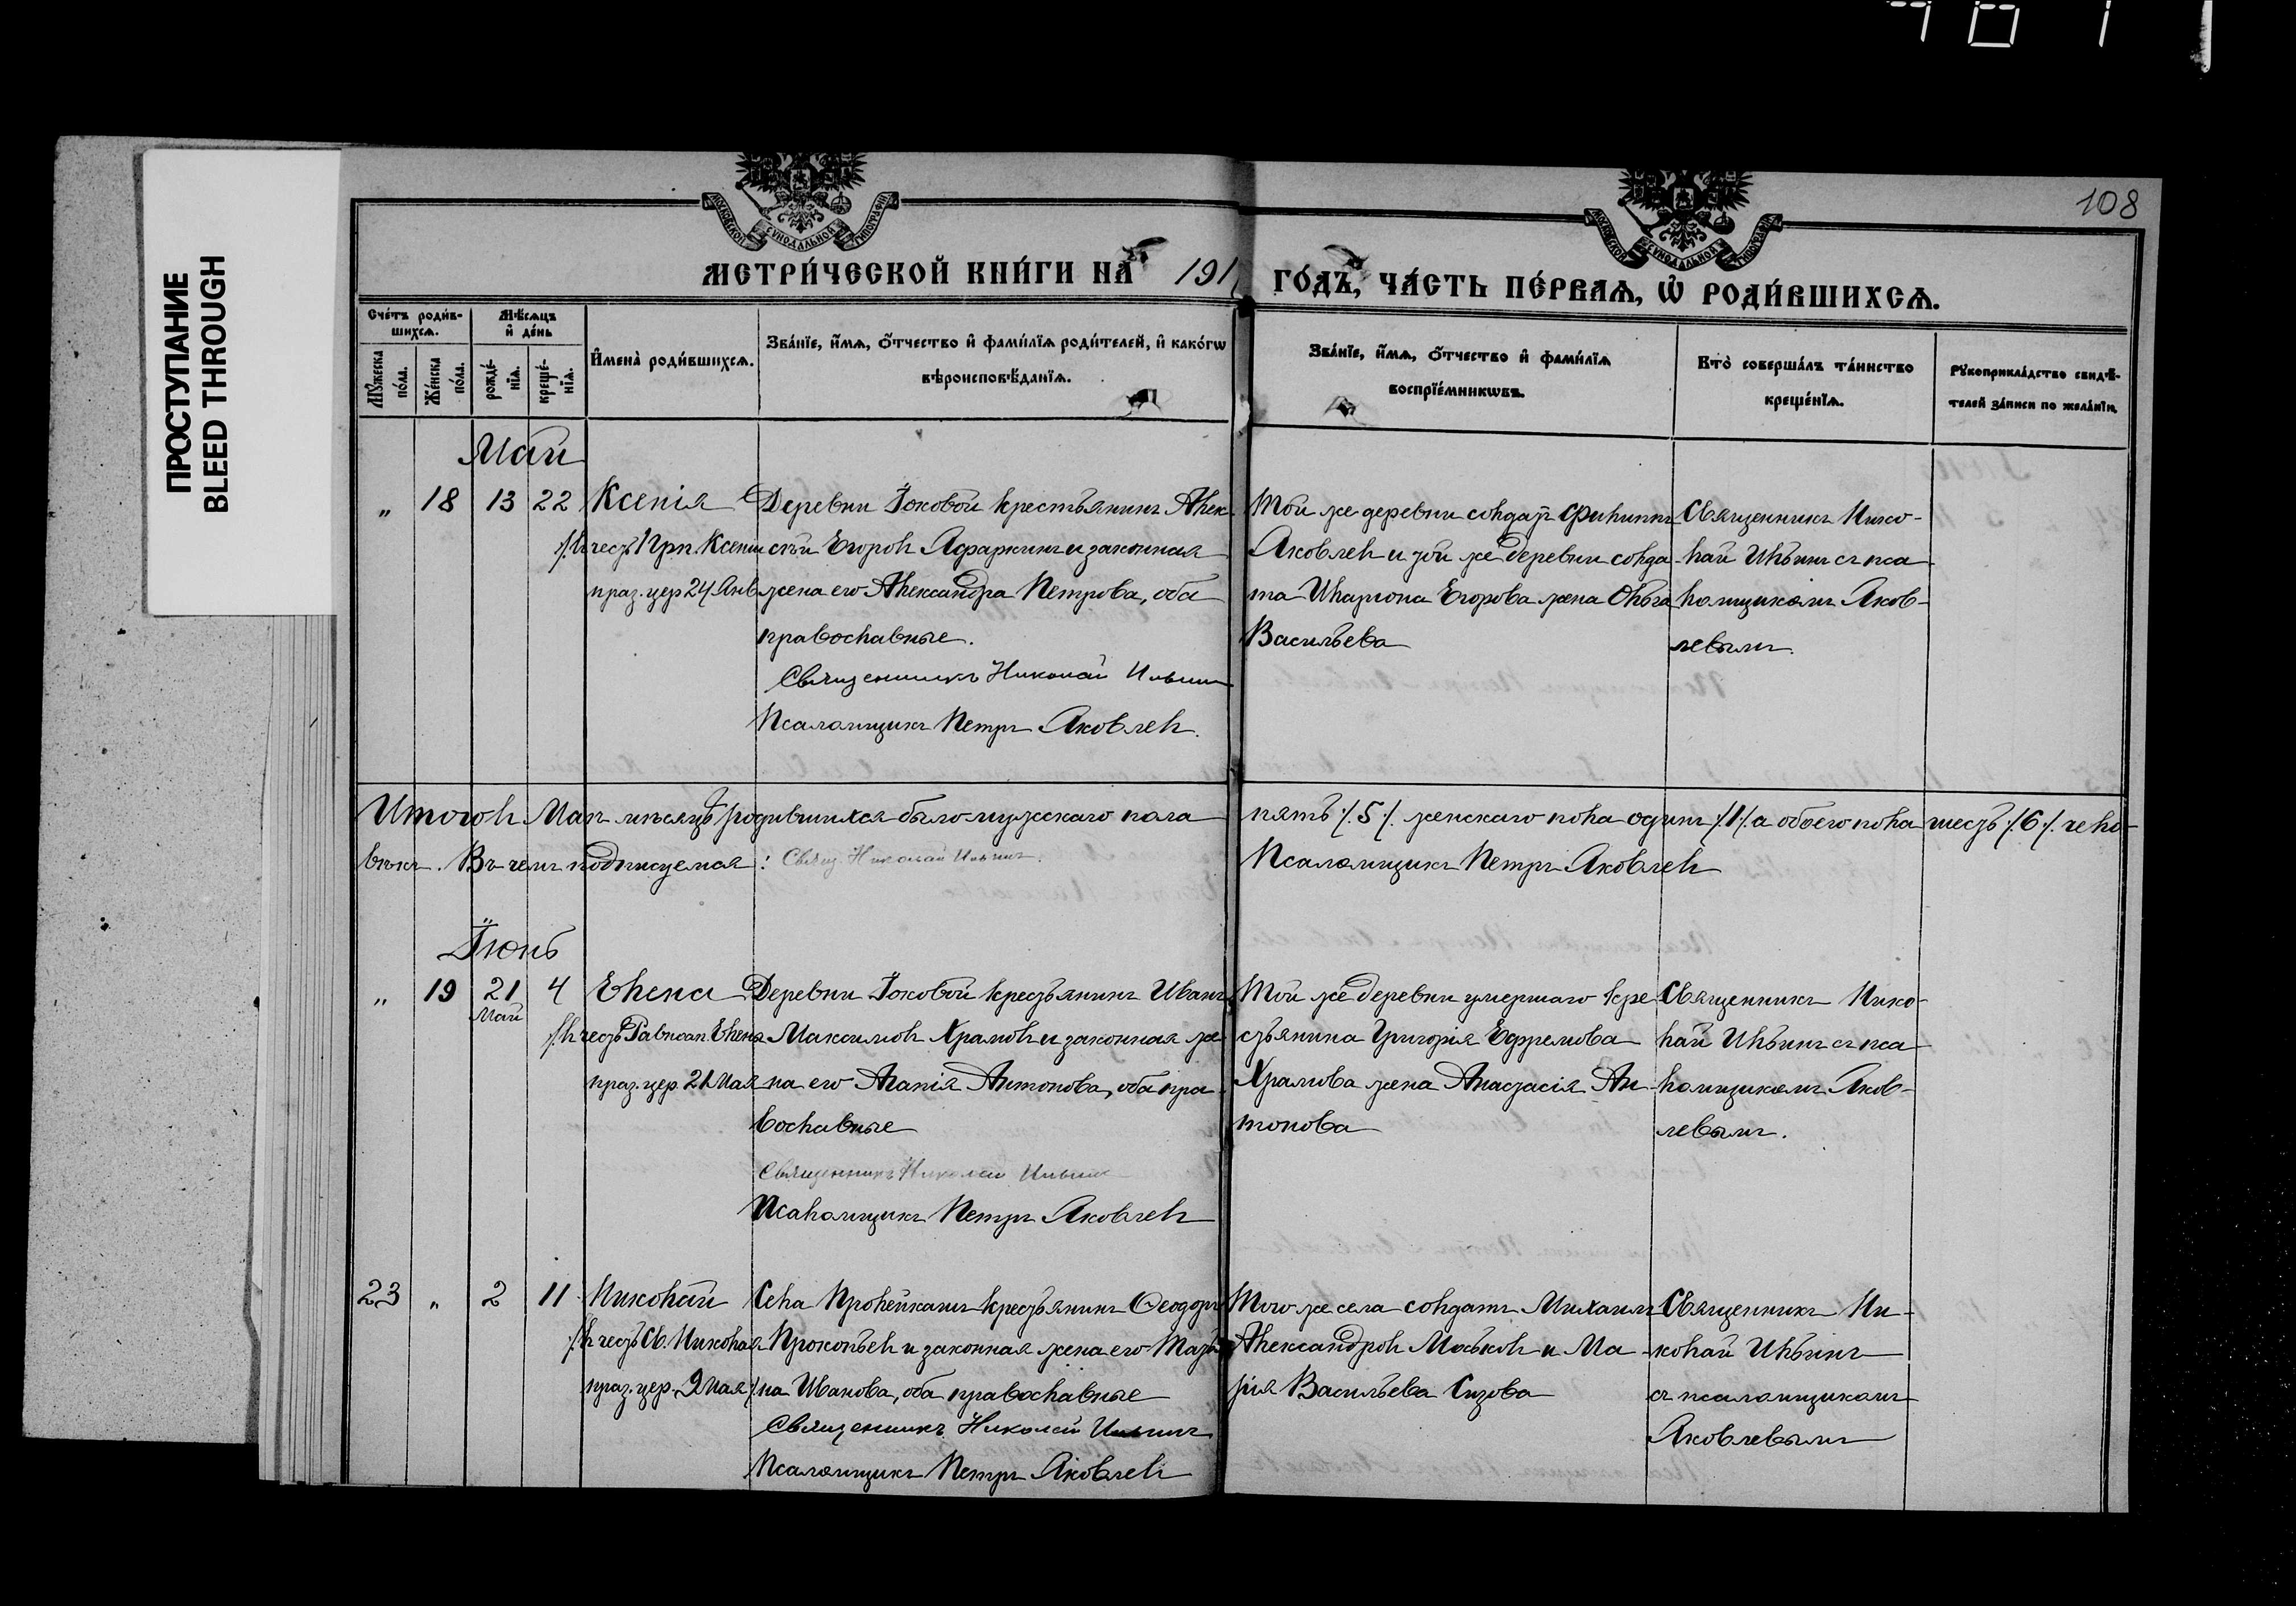 108
ПРОСТУПАНИЕ
BLEED THROUGH
МОСКОВСКОЙ СѴНОДАЛЬНОЙ ТИПОГРАФІИ
МОСКОВСКОЙ СѴНОДАЛЬНОЙ ТИПОГРАФІИ
МЕТРИ́ЧЕСКОЙ КНИ́ГИ НА 191 ГО́ДЪ, ЧА́СТЬ ПЕ́РВАѦ, Ѡ҆ РОДИ́ВШИХСѦ.
Сче́тъ роди́вшихсѧ.
Мꙋ́жеска по́ла.
Же́нска по́ла.
Мѣ́сѧцъ и҆ де́нь
рожде́нїѧ.
креще́нїѧ.
И҆мена̀ роди́вшихсѧ.
Зва́нїе, и҆́мѧ, ѻ҆́тчество и҆ фами́лїѧ роди́телей, и҆ како́гѡ
вѣроисповѣ́данїѧ.
Зва́нїе, и҆́мѧ, ѻ҆́тчество и҆ фами́лїѧ
воспрїе́мникѡвъ.
Кто̀ соверша́лъ та́инство
креще́нїѧ.
Рꙋкоприкла́дство свидѣ́-
телей за́писи по жела́нїю.
Май
„ 18 13 22 Ксенія
/:въ честь Прп. Ксеніи
праз. цер 24 Янв
Деревни Іоковой крестьянинъ Алек
сѣй Егоровъ Афаркинъ и законная
жена его Александра Петрова, оба
православные.
Священникъ Николай Ильинъ
Псаломщикъ Петръ Яковлевъ.
Той же деревни солдатъ Филиппъ
Яковлевъ и той же деревни солда
та Иларіона Егорова жена Ольга
Васильева
Священникъ Нико-
лай Ильинъ съ пса
ломщикомъ Яков-
левымъ.
Итого въ Маѣ мѣсяцѣ родившихся было мужскаго пола пять /:5:/. женскаго пола одинъ /:1:/. а обоего пола шесть /:6:/. чело-
вѣкъ. Въ чемъ подписуемся: Свящ. Николай Ильинъ. Псаломщикъ Петръ Яковлевъ
Іюнь
„ 19 21 Май 4 Елена
/:въ честь Равноап. Елены
праз. цер. 21 Мая
Деревни Іоковой крестьянинъ Иванъ
Максимовъ Храмовъ и законная же
на его Агапія Антонова, оба пра-
вославные
Священникъ Николай Ильинъ
Псаломщикъ Петръ Яковлевъ
Той же деревни умершаго кре
стьянина Григорія Ефремова
Храмова жена Анастасія Ан
тонова
Священникъ Нико-
лай Ильинъ съ пса
ломщикомъ Яков-
левымъ.
23 „ 2 11 Николай
/:въ честь Св. Николая
праз. цер. 9 Мая:/
Села Пролейкашъ крестьянинъ Ѳеодоръ
Прокопьевъ и законная жена его Татья
на Иванова, оба православные
Священникъ Николай Ильинъ
Псаломщикъ Петръ Яковлевъ
Того же села солдатъ Михаилъ
Александровъ Моськовъ и Ма
рія Васильева Сизова
Священникъ Ни-
колай Ильинъ
съ псаломщикомъ
Яковлевымъ